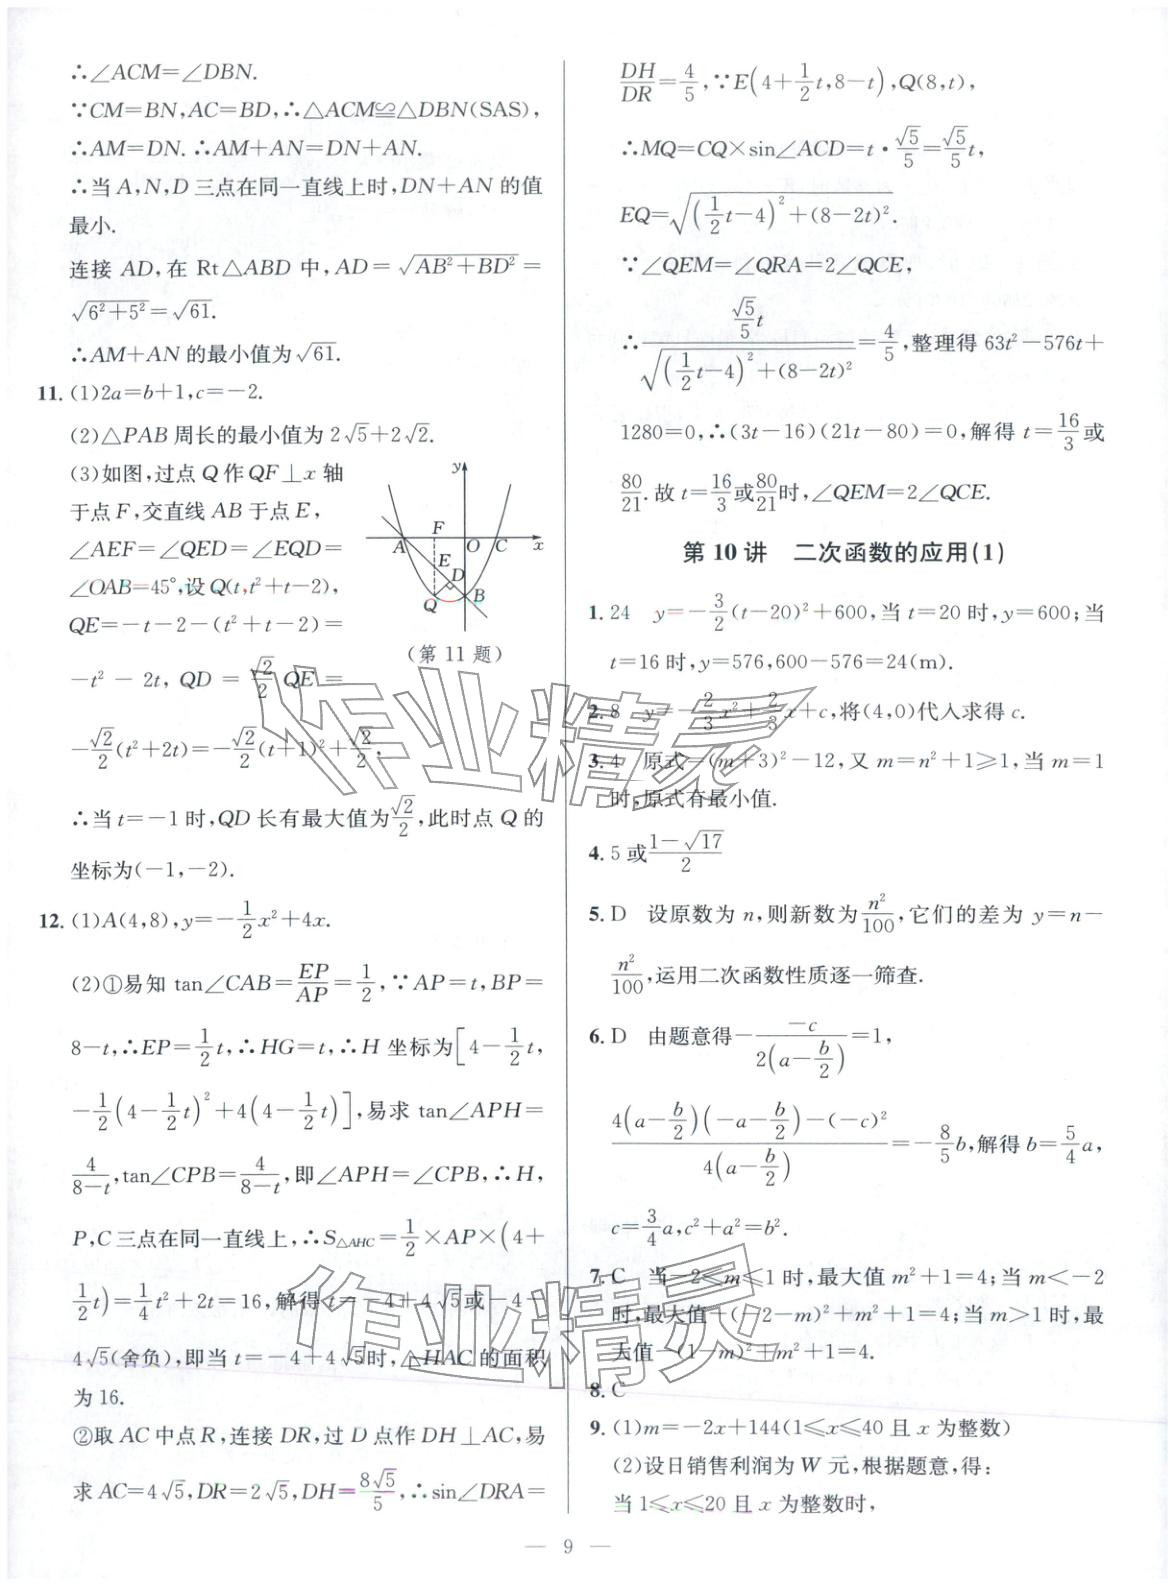 ∴∠ACM=∠DBN.
∵CM=BN,AC=BD,∴△ACM≌△DBN(SAS),
∴AM=DN. ∴AM+AN=DN+AN.
∴当 A,N,D 三点在同一直线上时,DN+AN 的值
最小.
连接 AD,在 Rt△ABD 中,AD=√(AB²+BD²)=
√(6²+5²)=√61.
∴AM+AN 的最小值为√61.
11. (1)2a=b+1,c=-2.
(2)△PAB 周长的最小值为 2√5+2√2.
(3)如图,过点 Q 作 QF⊥x 轴
于点 F,交直线 AB 于点 E,
∠AEF=∠QED=∠EQD=
∠OAB=45°,设 Q(t,t²+t-2),
QE=-t-2-(t²+t-2)=
-t²-2t, QD=√2/2 QE=
-√2/2(t²+2t)=-√2/2(t+1)²+√2/2,
y
F
A O C x
E
D
Q B
(第 11 题)
∴当 t=-1 时,QD 长有最大值为√2/2,此时点 Q 的
坐标为(-1,-2).
12. (1)A(4,8),y=-1/2x²+4x.
(2)①易知 tan∠CAB=EP/AP=1/2,∵AP=t,BP=
8-t,∴EP=1/2t,∴HG=t,∴H 坐标为[4-1/2t,
-1/2(4-1/2t)²+4(4-1/2t)],易求 tan∠APH=
4/(8-t),tan∠CPB=4/(8-t),即∠APH=∠CPB,∴H,
P,C 三点在同一直线上,∴S△AHC=1/2×AP×(4+
1/2t)=1/4t²+2t=16,解得 t=-4+4√5或-4-
4√5(舍负),即当 t=-4+4√5时,△HAC 的面积
为 16.
②取 AC 中点 R,连接 DR,过 D 点作 DH⊥AC,易
求 AC=4√5,DR=2√5,DH=8√5/5,∴sin∠DRA=
DH/DR=4/5,∵E(4+1/2t,8-t),Q(8,t),
∴MQ=CQ×sin∠ACD=t·√5/5=√5/5t,
EQ=√((1/2t-4)²+(8-2t)²).
∵∠QEM=∠QRA=2∠QCE,
∴(√5/5t)/√((1/2t-4)²+(8-2t)²)=4/5,整理得 63t²-576t+
1280=0,∴(3t-16)(21t-80)=0,解得 t=16/3或
80/21.故 t=16/3或80/21时,∠QEM=2∠QCE.
第 10 讲 二次函数的应用(1)
1. 24 y=-3/2(t-20)²+600,当 t=20 时,y=600;当
t=16 时,y=576,600-576=24(m).
2. 8 y=-2/3x²+2/3x+c,将(4,0)代入求得 c.
3. 4 原式=(m+3)²-12,又 m=n²+1≥1,当 m=1
时,原式有最小值.
4. 5 或(1-√17)/2
5. D 设原数为 n,则新数为n²/100,它们的差为 y=n-
n²/100,运用二次函数性质逐一筛查.
6. D 由题意得-(-c)/(2(a-b/2))=1,
(4(a-b/2)(-a-b/2)-(-c)²)/(4(a-b/2))=-8/5b,解得 b=5/4a,
c=3/4a,c²+a²=b².
7. C 当-2≤m≤1 时,最大值 m²+1=4;当 m<-2
时,最大值-(-2-m)²+m²+1=4;当 m>1 时,最
大值-(1-m)²+m²+1=4.
8. C
9. (1)m=-2x+144(1≤x≤40 且 x 为整数)
(2)设日销售利润为 W 元,根据题意,得:
当 1≤x≤20 且 x 为整数时,
— 9 —
作业精灵
作业精灵